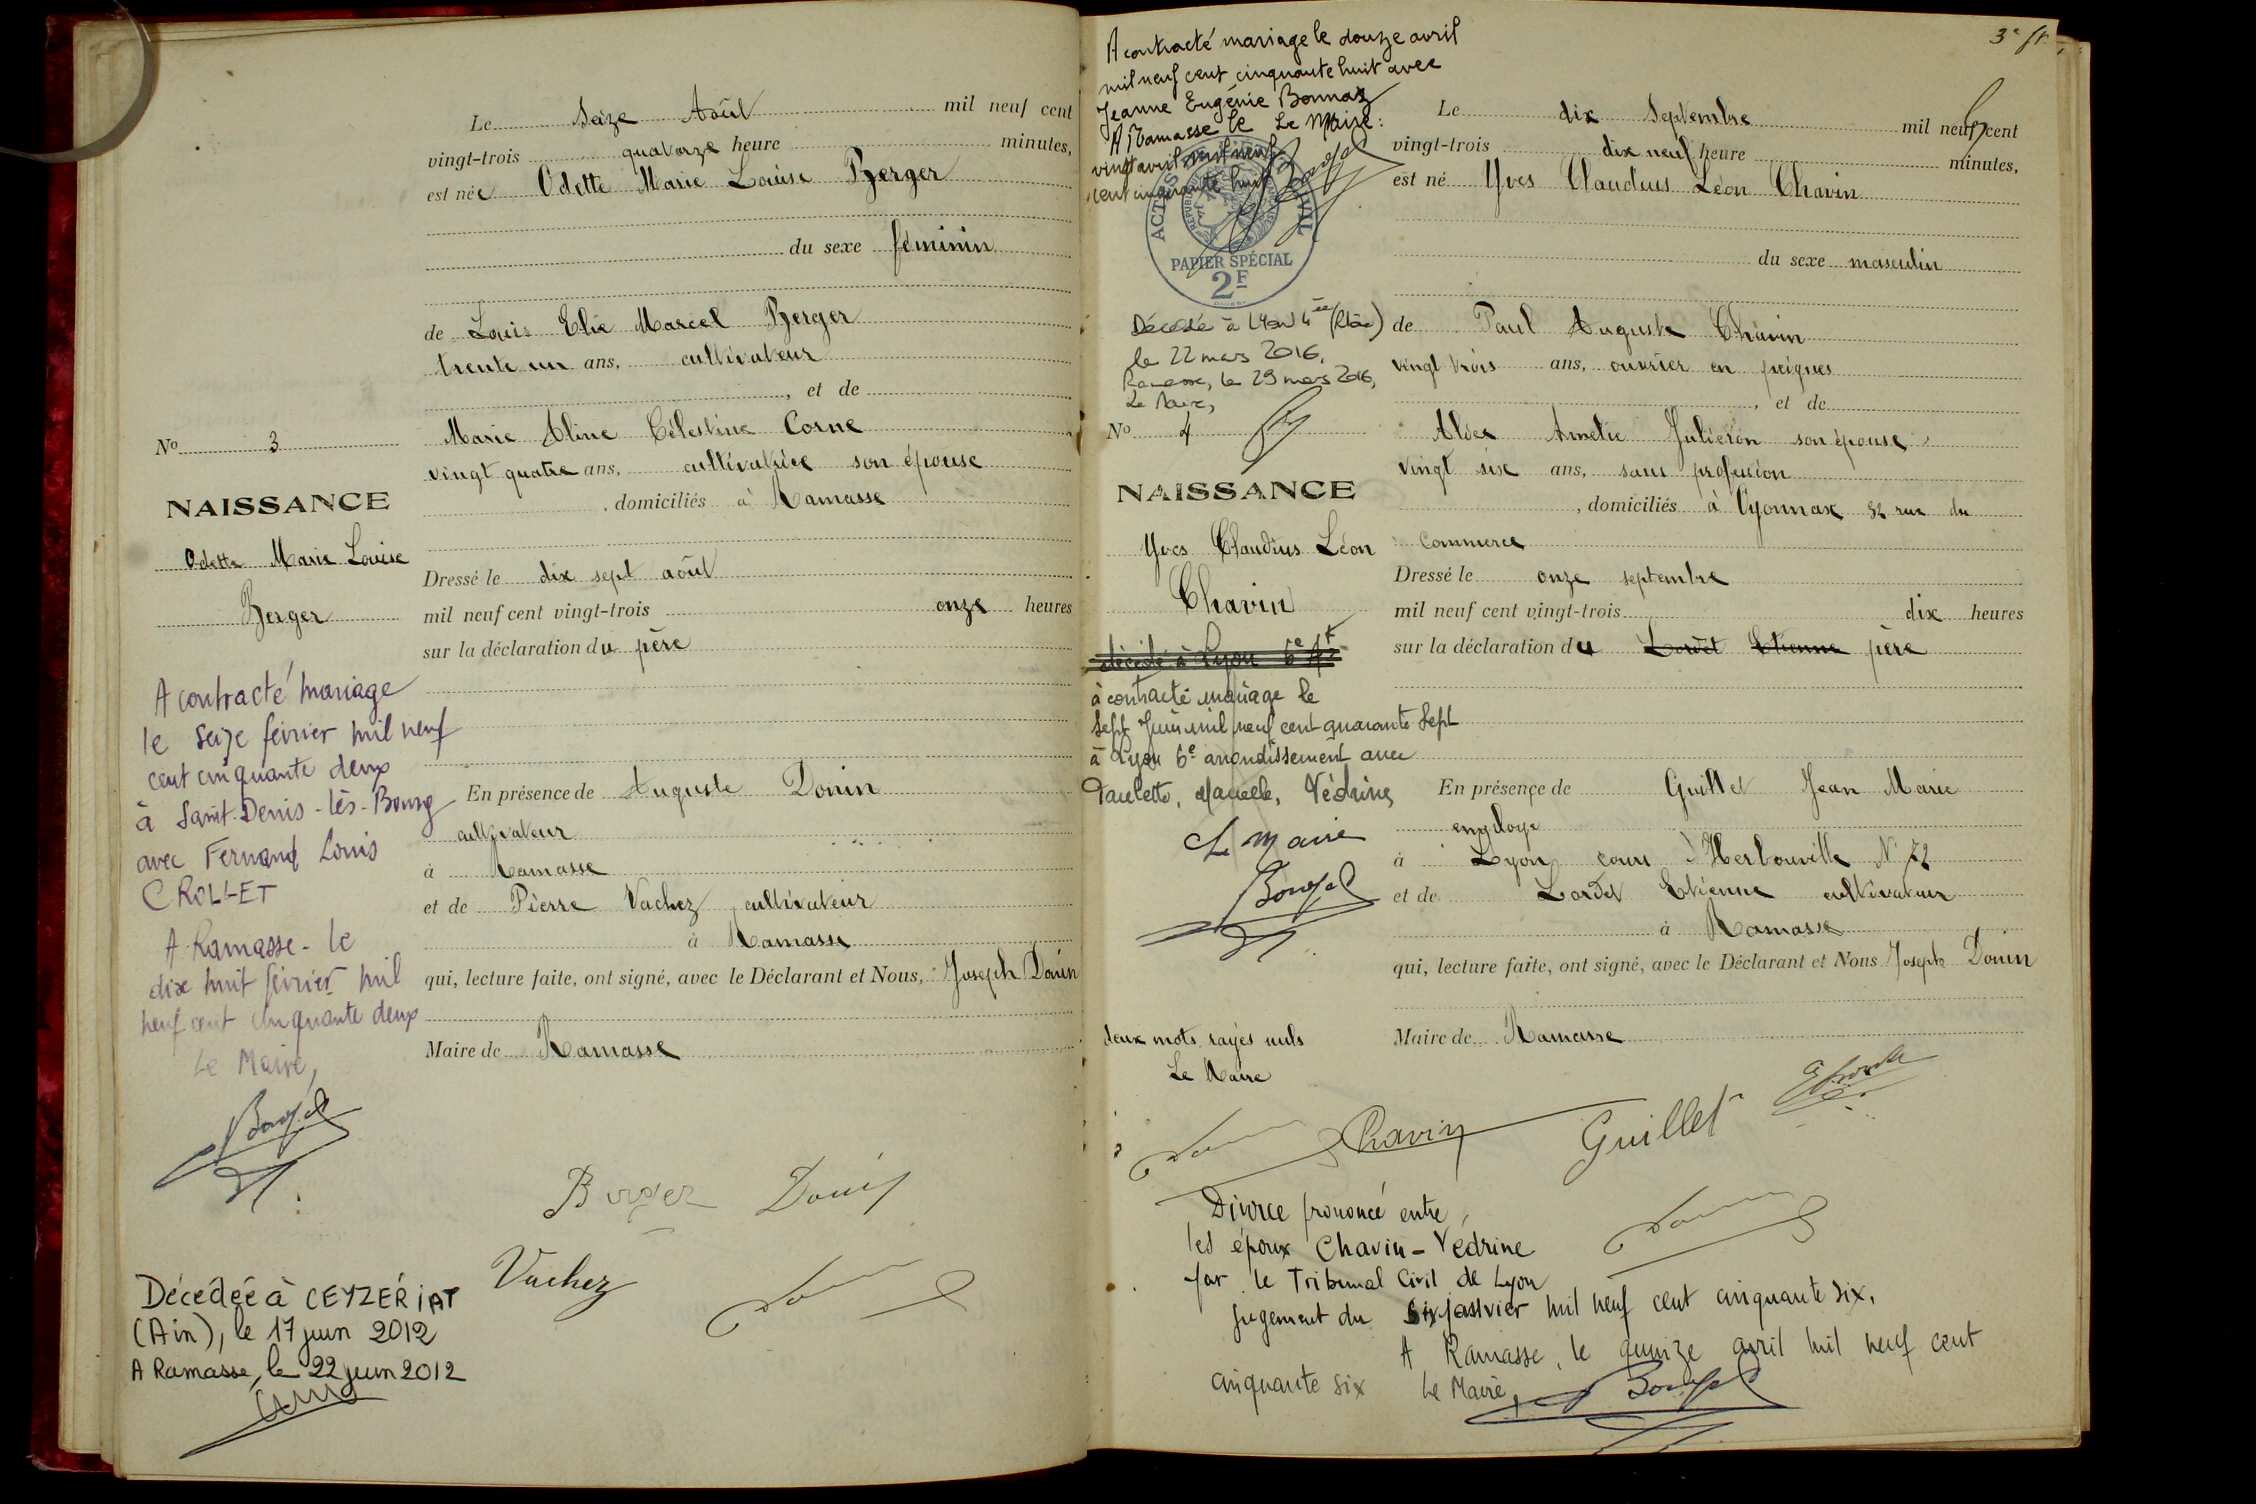 Le Seize Août mil neuf cent
vingt-trois quatorze heure minutes,
est née Odette Marie Louise Berger
du sexe féminin
de Louis Elie Marcel Berger
trente un ans, cultivateur
, et de
Marie Aline Célestine Corne
vingt quatre ans, cultivatrice son épouse
, domiciliés à Ramasse
No 3
NAISSANCE
Odette Marie Louise
Berger
Dressé le dix sept août
mil neuf cent vingt-trois onze heures
sur la déclaration du père
A contracté mariage
le seize février mil neuf
cent cinquante deux
à Saint-Denis-lès-Bourg
avec Fernand Louis
CROLLET
A Ramasse - le
dix huit février mil
neuf cent cinquante deux
Le Maire,
En présence de Auguste Donin
cultivateur
à Ramasse
et de Pierre Vachez cultivateur
à Ramasse
qui, lecture faite, ont signé, avec le Déclarant et Nous, Joseph Donin
Maire de Ramasse
Berger Donin
Vachez
Décédée à CEYZÉRIAT
(Ain), le 17 juin 2012
A Ramasse, le 22 juin 2012
3e
A contracté mariage le douze avril
mil neuf cent cinquante huit avec
Jeanne Eugénie Bonnaz
A Ramasse le Le Maire:
vingt avril mil neuf
cent cinquante huit
PAPIER SPÉCIAL
2F
Le dix Septembre mil neuf cent
vingt-trois dix neuf heure minutes,
est né Yves Claudius Léon Chavin
du sexe masculin
Décédé à Lyon 4ème (Rhône)
le 22 mars 2016,
Ramasse, le 29 mars 2016,
Le Maire,
de Paul Auguste Chavin
vingt trois ans, ouvrier en peignes
, et de
No 4
Alice Amélie Julieron son épouse
vingt six ans, sans profession
, domiciliés à Oyonnax 32 rue du
Commerce
NAISSANCE
Yves Claudius Léon
Chavin
Dressé le onze septembre
mil neuf cent vingt-trois dix heures
sur la déclaration du Lordet Etienne père
décédé à Lyon 6e At
à contracté mariage le
Sept Juin mil neuf cent quarante Sept
à Lyon 6e arrondissement avec
Paulette, Marcelle, Védrine
Le Maire
En présence de Guillet Jean Marie
employé
à Lyon cours d'Herbouville N° 72
et de Lordet Etienne cultivateur
à Ramasse
qui, lecture faite, ont signé, avec le Déclarant et Nous Joseph Donin
Maire de Ramasse
deux mots rayés nuls
Le Maire
Chavin Guillet
Divorce prononcé entre
les époux Chavin - Védrine
par le Tribunal Civil de Lyon
jugement du six janvier mil neuf cent cinquante six.
A Ramasse, le quinze avril mil neuf cent
cinquante six Le Maire,